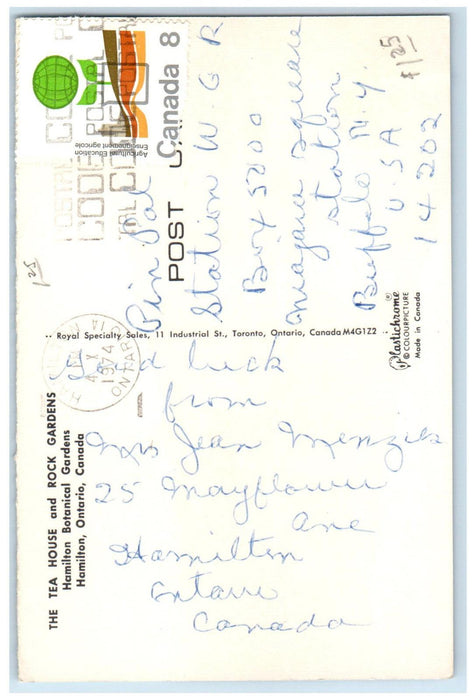 THE TEA HOUSE and ROCK GARDENS
Hamilton Botanical Gardens
Hamilton, Ontario, Canada
Good luck
from
Mrs Jean Menzies
25 Mayflower
Ave
Hamilton
Ontario
Canada
Royal Specialty Sales, 11 Industrial St., Toronto, Ontario, Canada M4G1Z2
POST
Agricultural Education
Enseignement agricole
Canada 8
POSTAL CODE
1974
ONTARIO
Pin Pal
Station W G R
Box 5200
Niagara Square
Station
Buffalo N.Y.
U S A
14202
Plastichrome®
© COLOURPICTURE
Made in Canada
1.25
$1.25